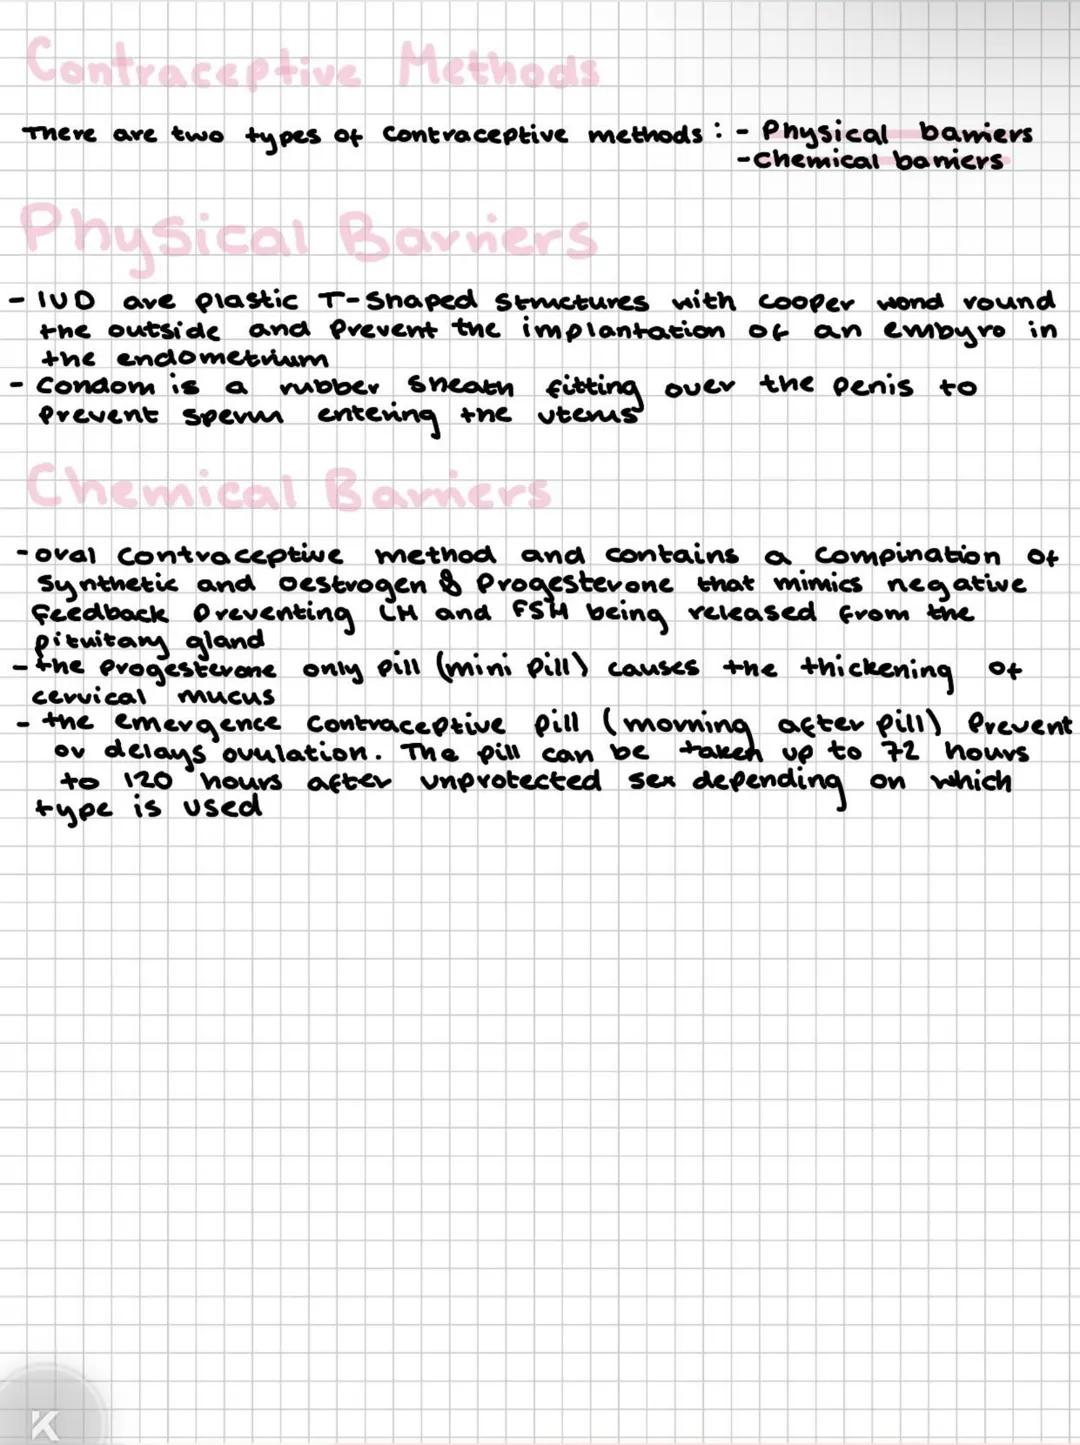 Contraceptive Methods
There are two types of contraceptive methods : - Physical barriers
- Chemical barriers
Physical Barriers
- IUD are plastic T-shaped structures with cooper wond round
the outside and prevent the implantation of an embyro in
the endometrium
- Condom is a rubber sheath fitting over the penis to
prevent sperm entering the uterus
Chemical Barriers
- oral contraceptive method and contains a compination of
synthetic and oestrogen & progesterone that mimics negative
feedback preventing LH and FSH being released from the
pituitary gland
- the progesterone only pill (mini pill) causes the thickening of
cervical mucus
- the emergence contraceptive pill (morning after pill) prevent
or delays ovulation. The pill can be taken up to 72 hours
to 120 hours after unprotected sex depending on which
type is used
K